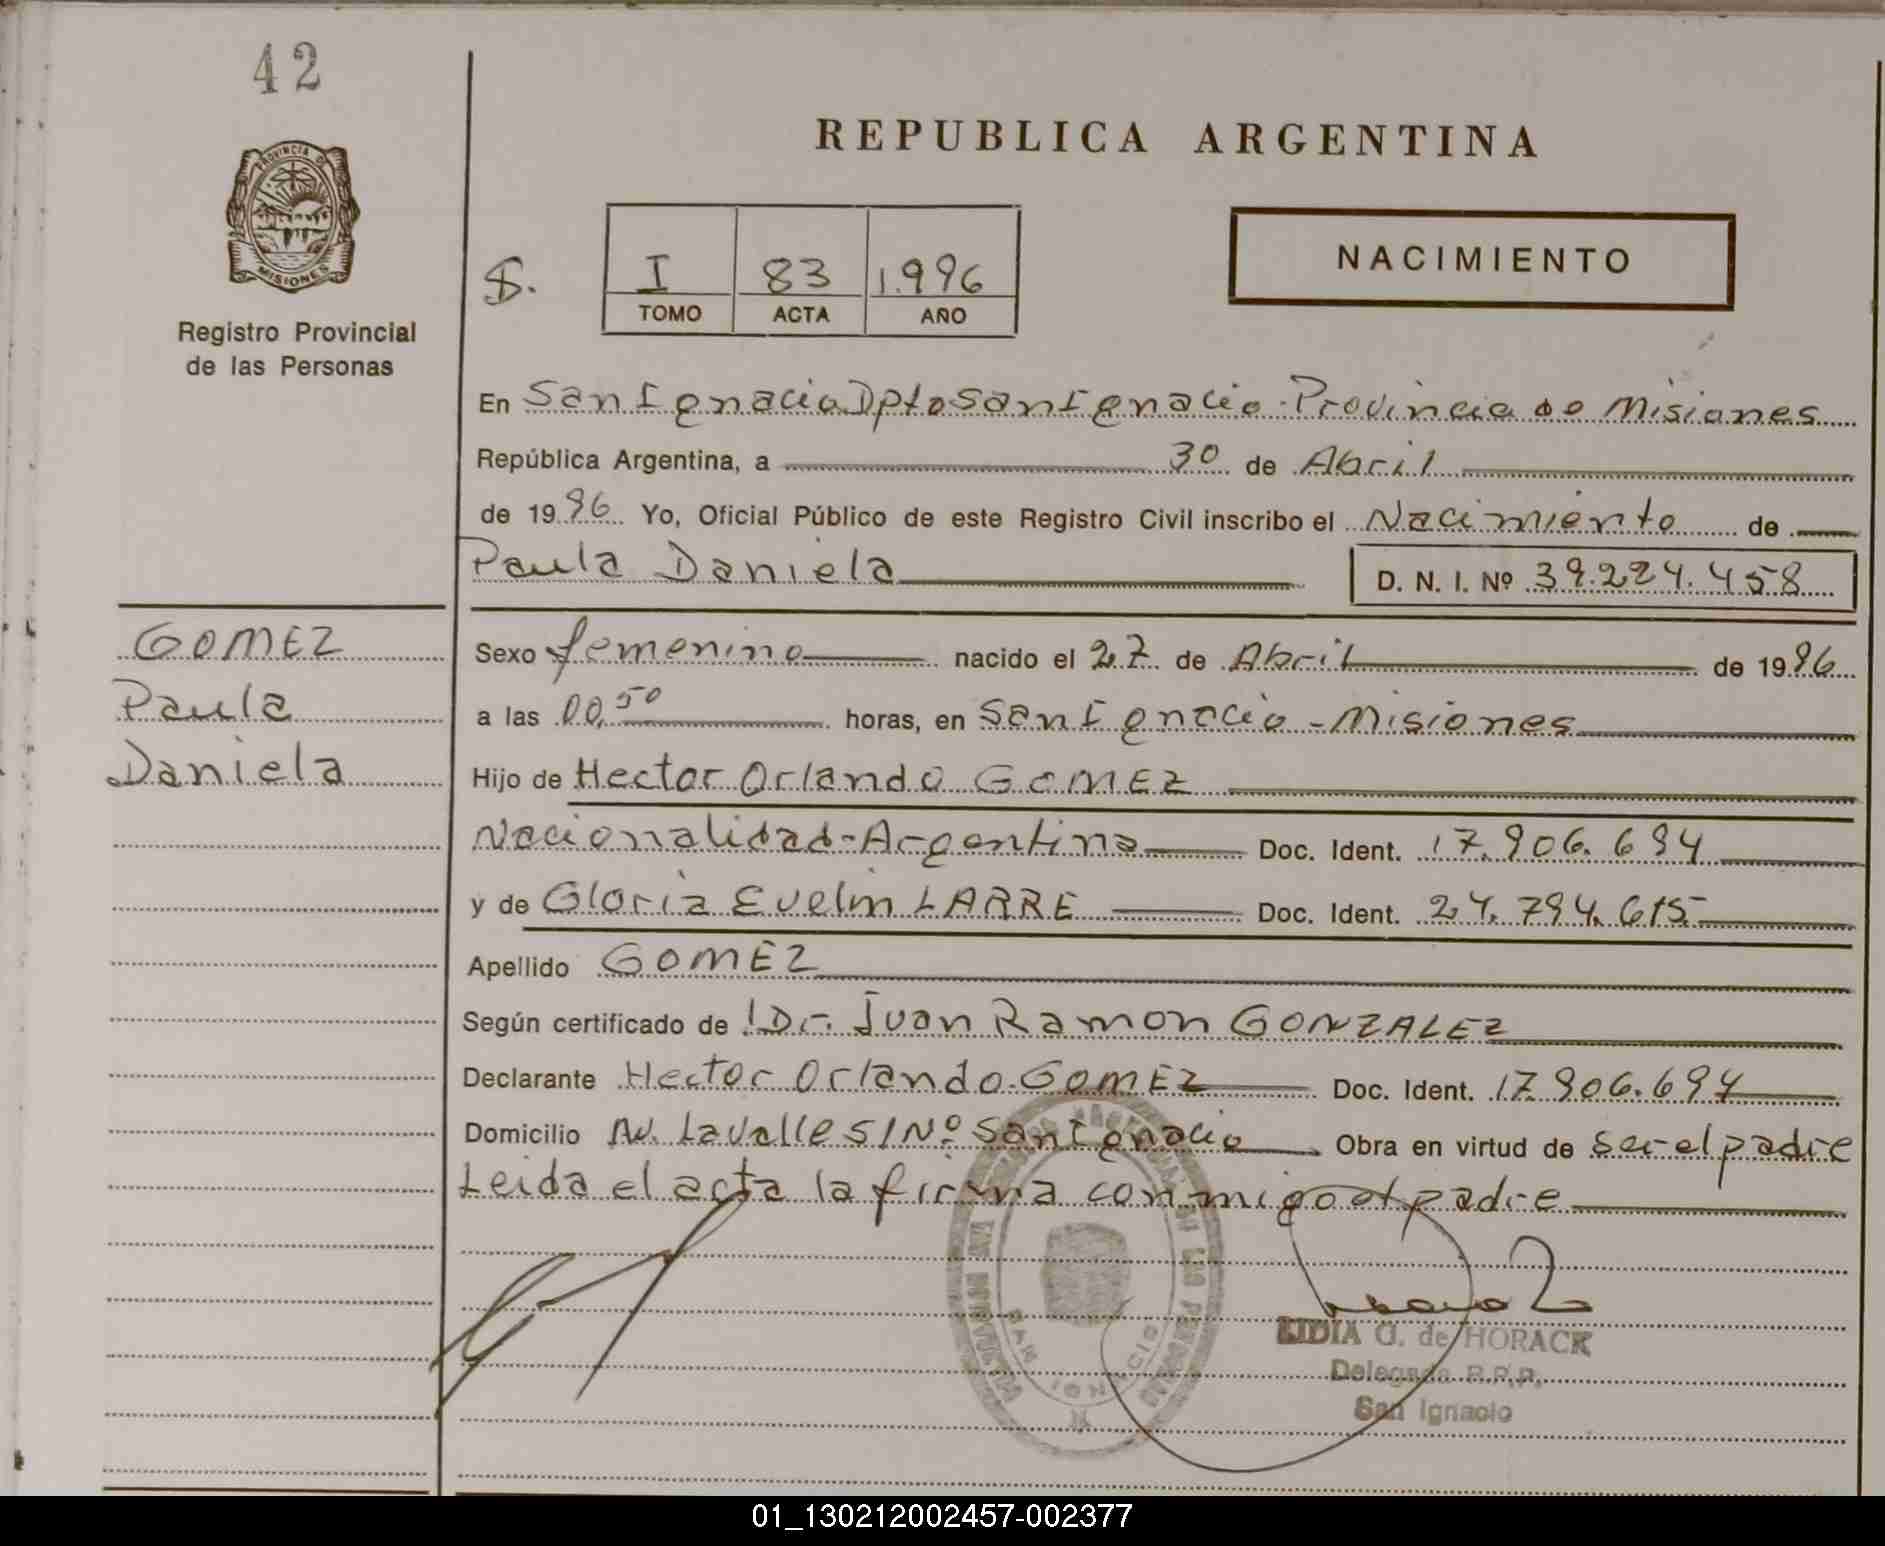 42
REPUBLICA ARGENTINA
PROVINCIA DE
MISIONES
Registro Provincial
de las Personas
NACIMIENTO
I 83 1.996
TOMO ACTA AÑO
En San Ignacio Dpto San Ignacio - Provincia de Misiones
República Argentina, a 30 de Abril
de 1996 Yo, Oficial Público de este Registro Civil inscribo el Nacimiento de
Paula Daniela D. N. I. Nº 39.224.458
GOMEZ
Paula
Daniela
Sexo femenino nacido el 27 de Abril de 1996
a las 00,50 horas, en San Ignacio - Misiones
Hijo de Hector Orlando GOMEZ
Nacionalidad - Argentina Doc. Ident. 17.906.694
y de Gloria Evelin LARRE Doc. Ident. 24.794.615
Apellido GOMEZ
Según certificado de Dr. Juan Ramon GONZALEZ
Declarante Hector Orlando GOMEZ Doc. Ident. 17.906.694
Domicilio Av. Lavalle S/Nº San Ignacio Obra en virtud de ser el padre
Leida el acta la firma conmigo el padre
LIDIA G. de HORACK
Delegada R.P.P.
San Ignacio
01_130212002457-002377